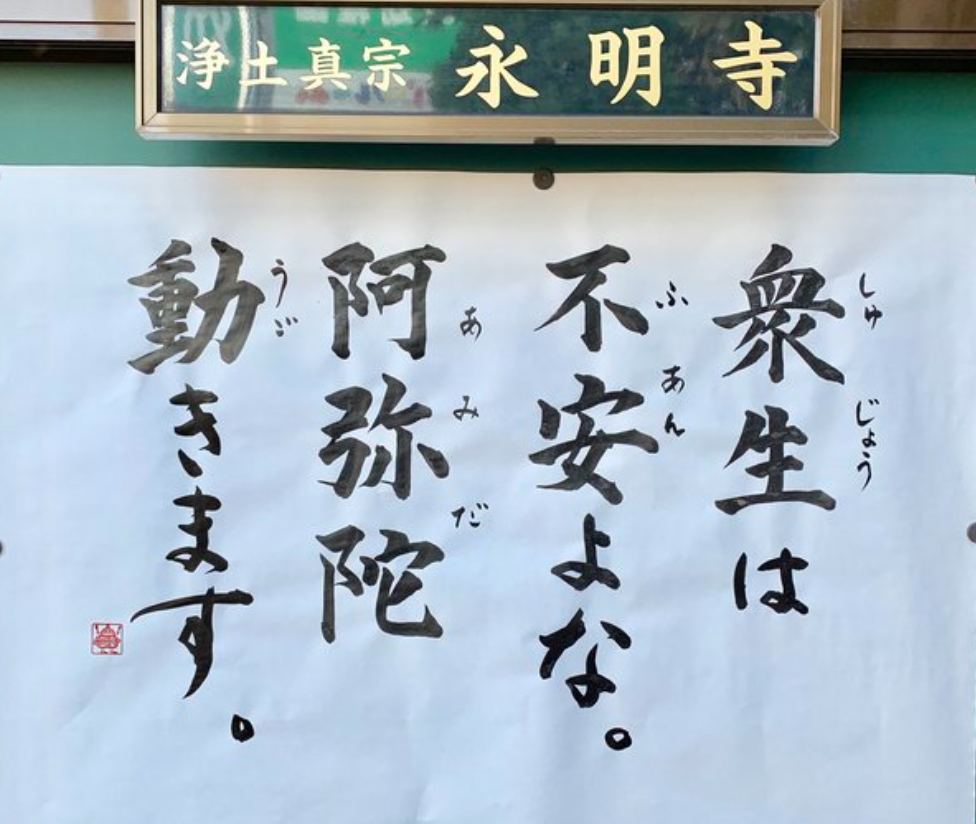 浄土真宗 永明寺
衆生は
不安よな。
阿弥陀
動きます。
しゅ じょう
ふ あん
あ み だ
うご